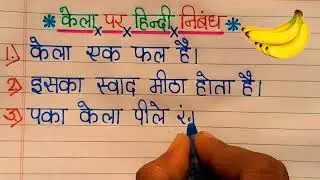 * केला पर हिन्दी निबंध *
1.) केला एक फल है।
2.) इसका स्वाद मीठा होता है।
3.) पका केला पीले रं